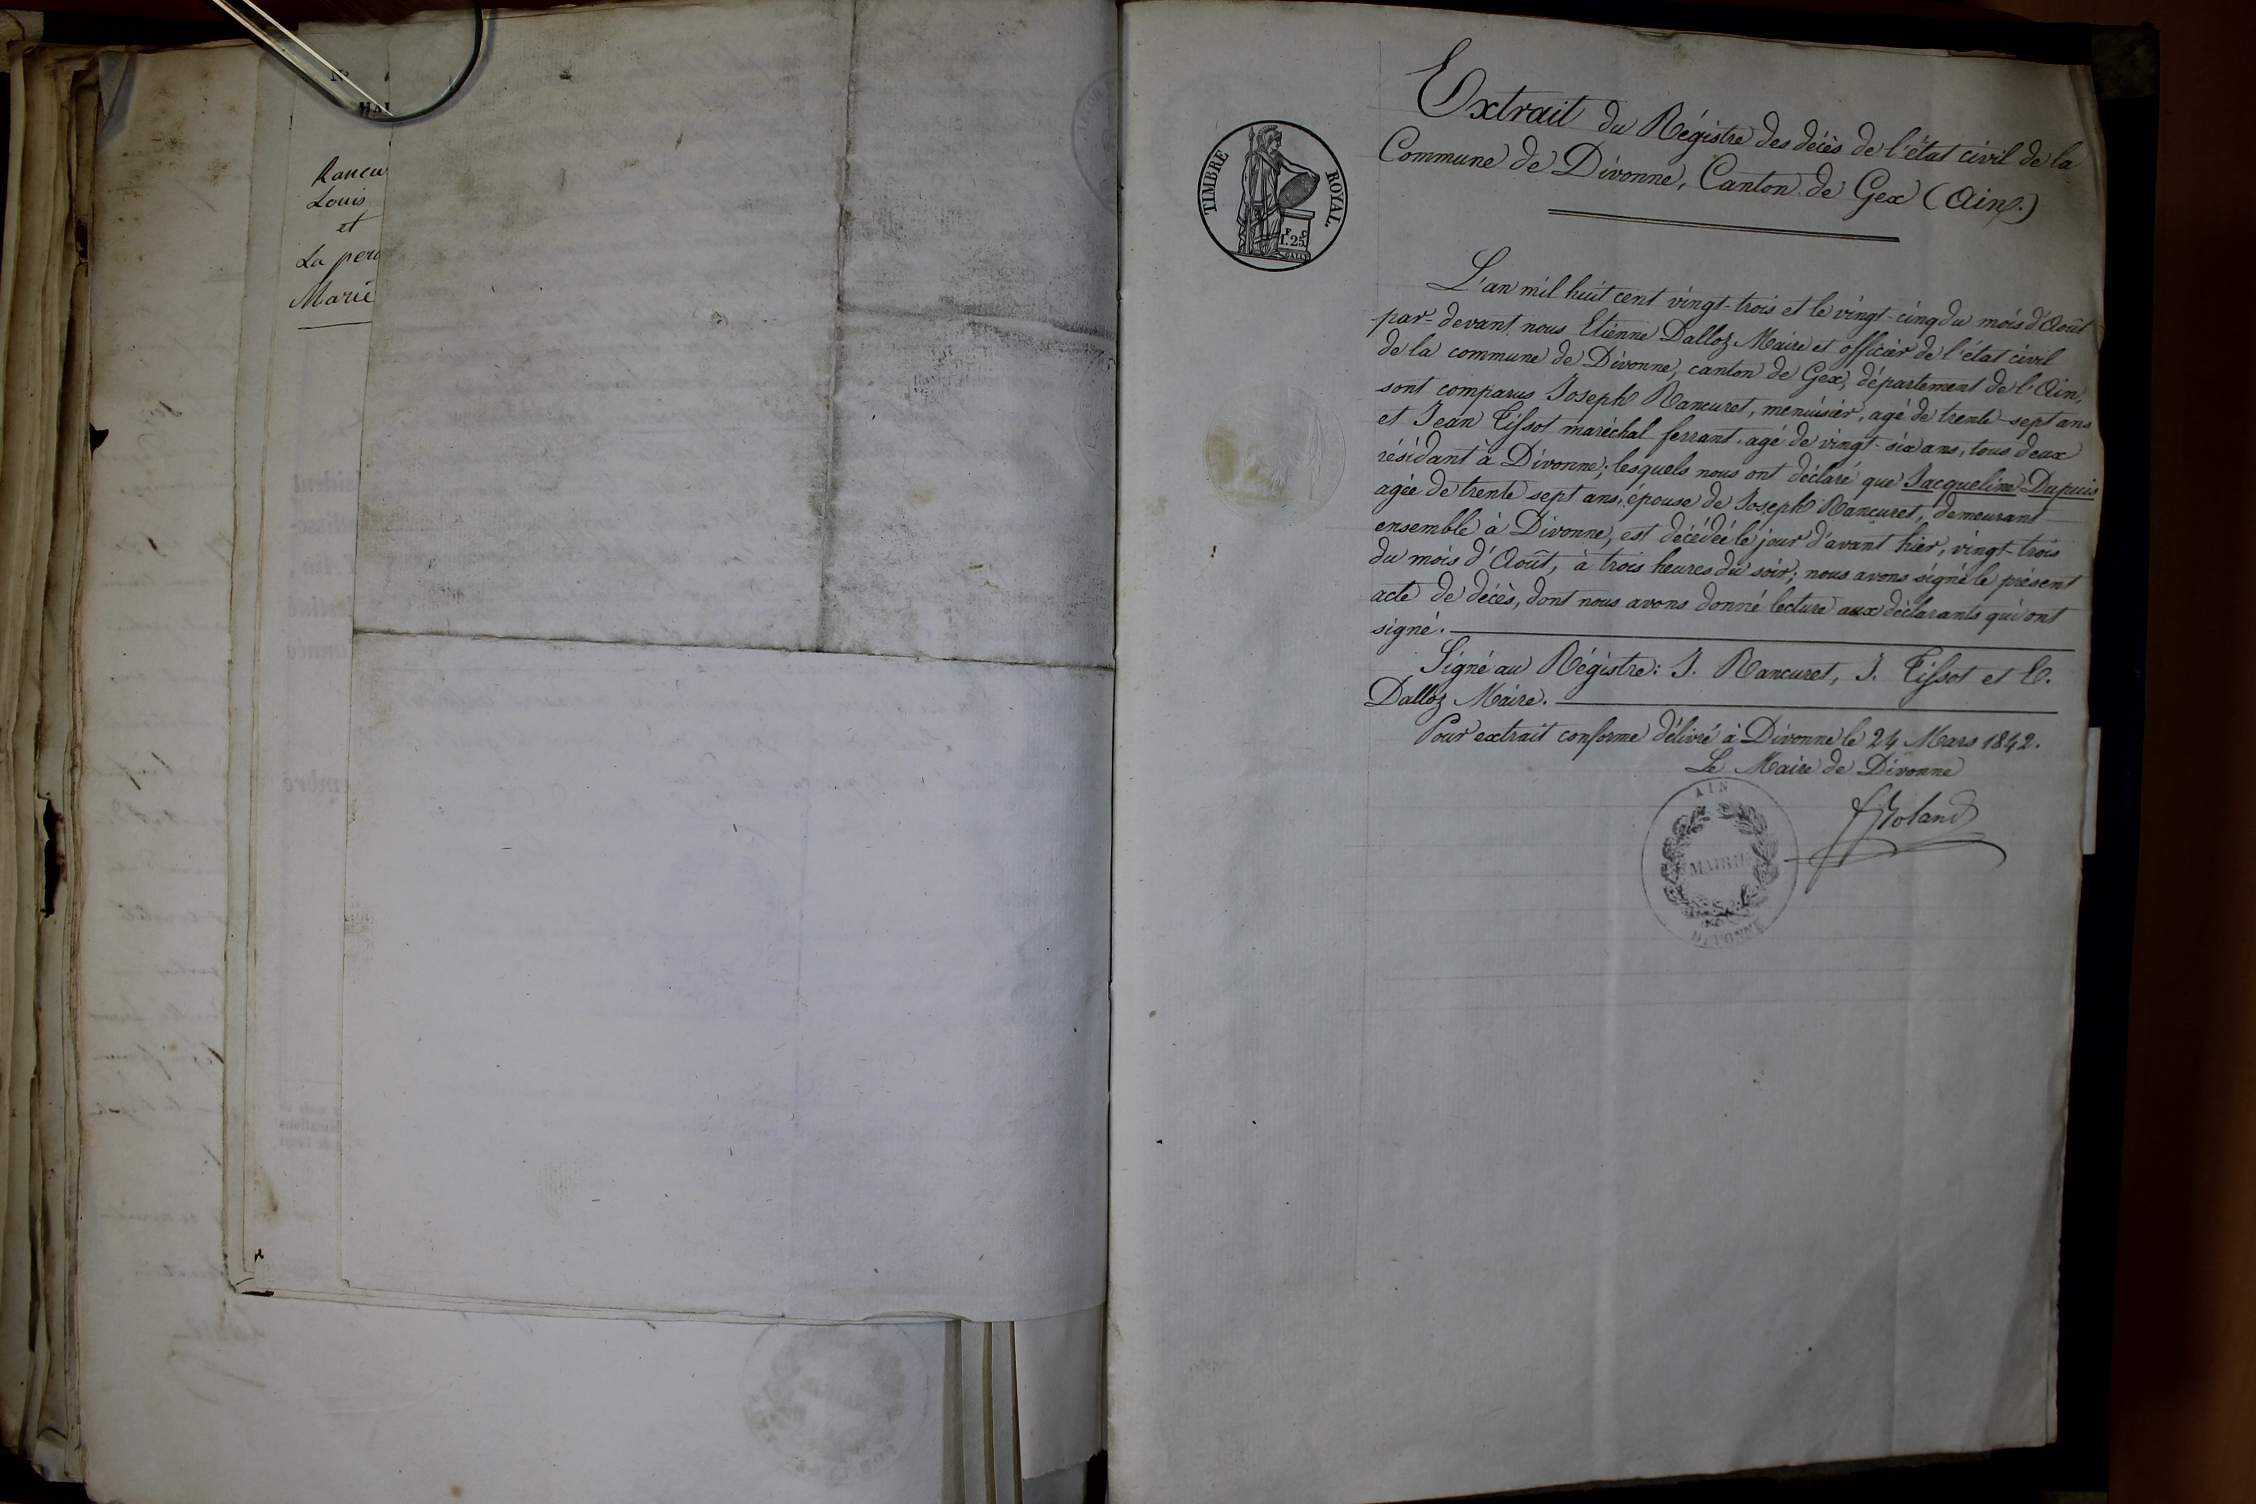 Rancu
Louis
et
La pero
Marie
TIMBRE ROYAL.
F C
1.25.
Extrait du Régistre des décès de l'état civil de la
Commune de Divonne, Canton de Gex (Ain.)
L'an mil huit cent vingt-trois et le vingt-cinq du mois d'Août
par-devant nous Etienne Dalloz Maire et officier de l'état civil
de la commune de Divonne, canton de Gex, département de l'Ain,
sont comparus Joseph Rancuret, menuisier, agé de trente-sept ans
et Jean Tissot maréchal ferrant, agé de vingt-six ans, tous deux
résidant à Divonne; lesquels nous ont déclaré que Jacqueline Dupuis
agée de trente sept ans, épouse de Joseph Rancuret, demeurant
ensemble à Divonne, est décédée le jour d'avant hier, vingt-trois
du mois d'Août, à trois heures du soir; nous avons signé le présent
acte de décès, dont nous avons donné lecture aux déclarants qui ont
signé.
Signé au Régistre: J. Rancuret, J. Tissot et E.
Dalloz Maire.
Pour extrait conforme délivré à Divonne le 24 Mars 1842.
Le Maire de Divonne
AIN
MAIRIE
DIVONNE